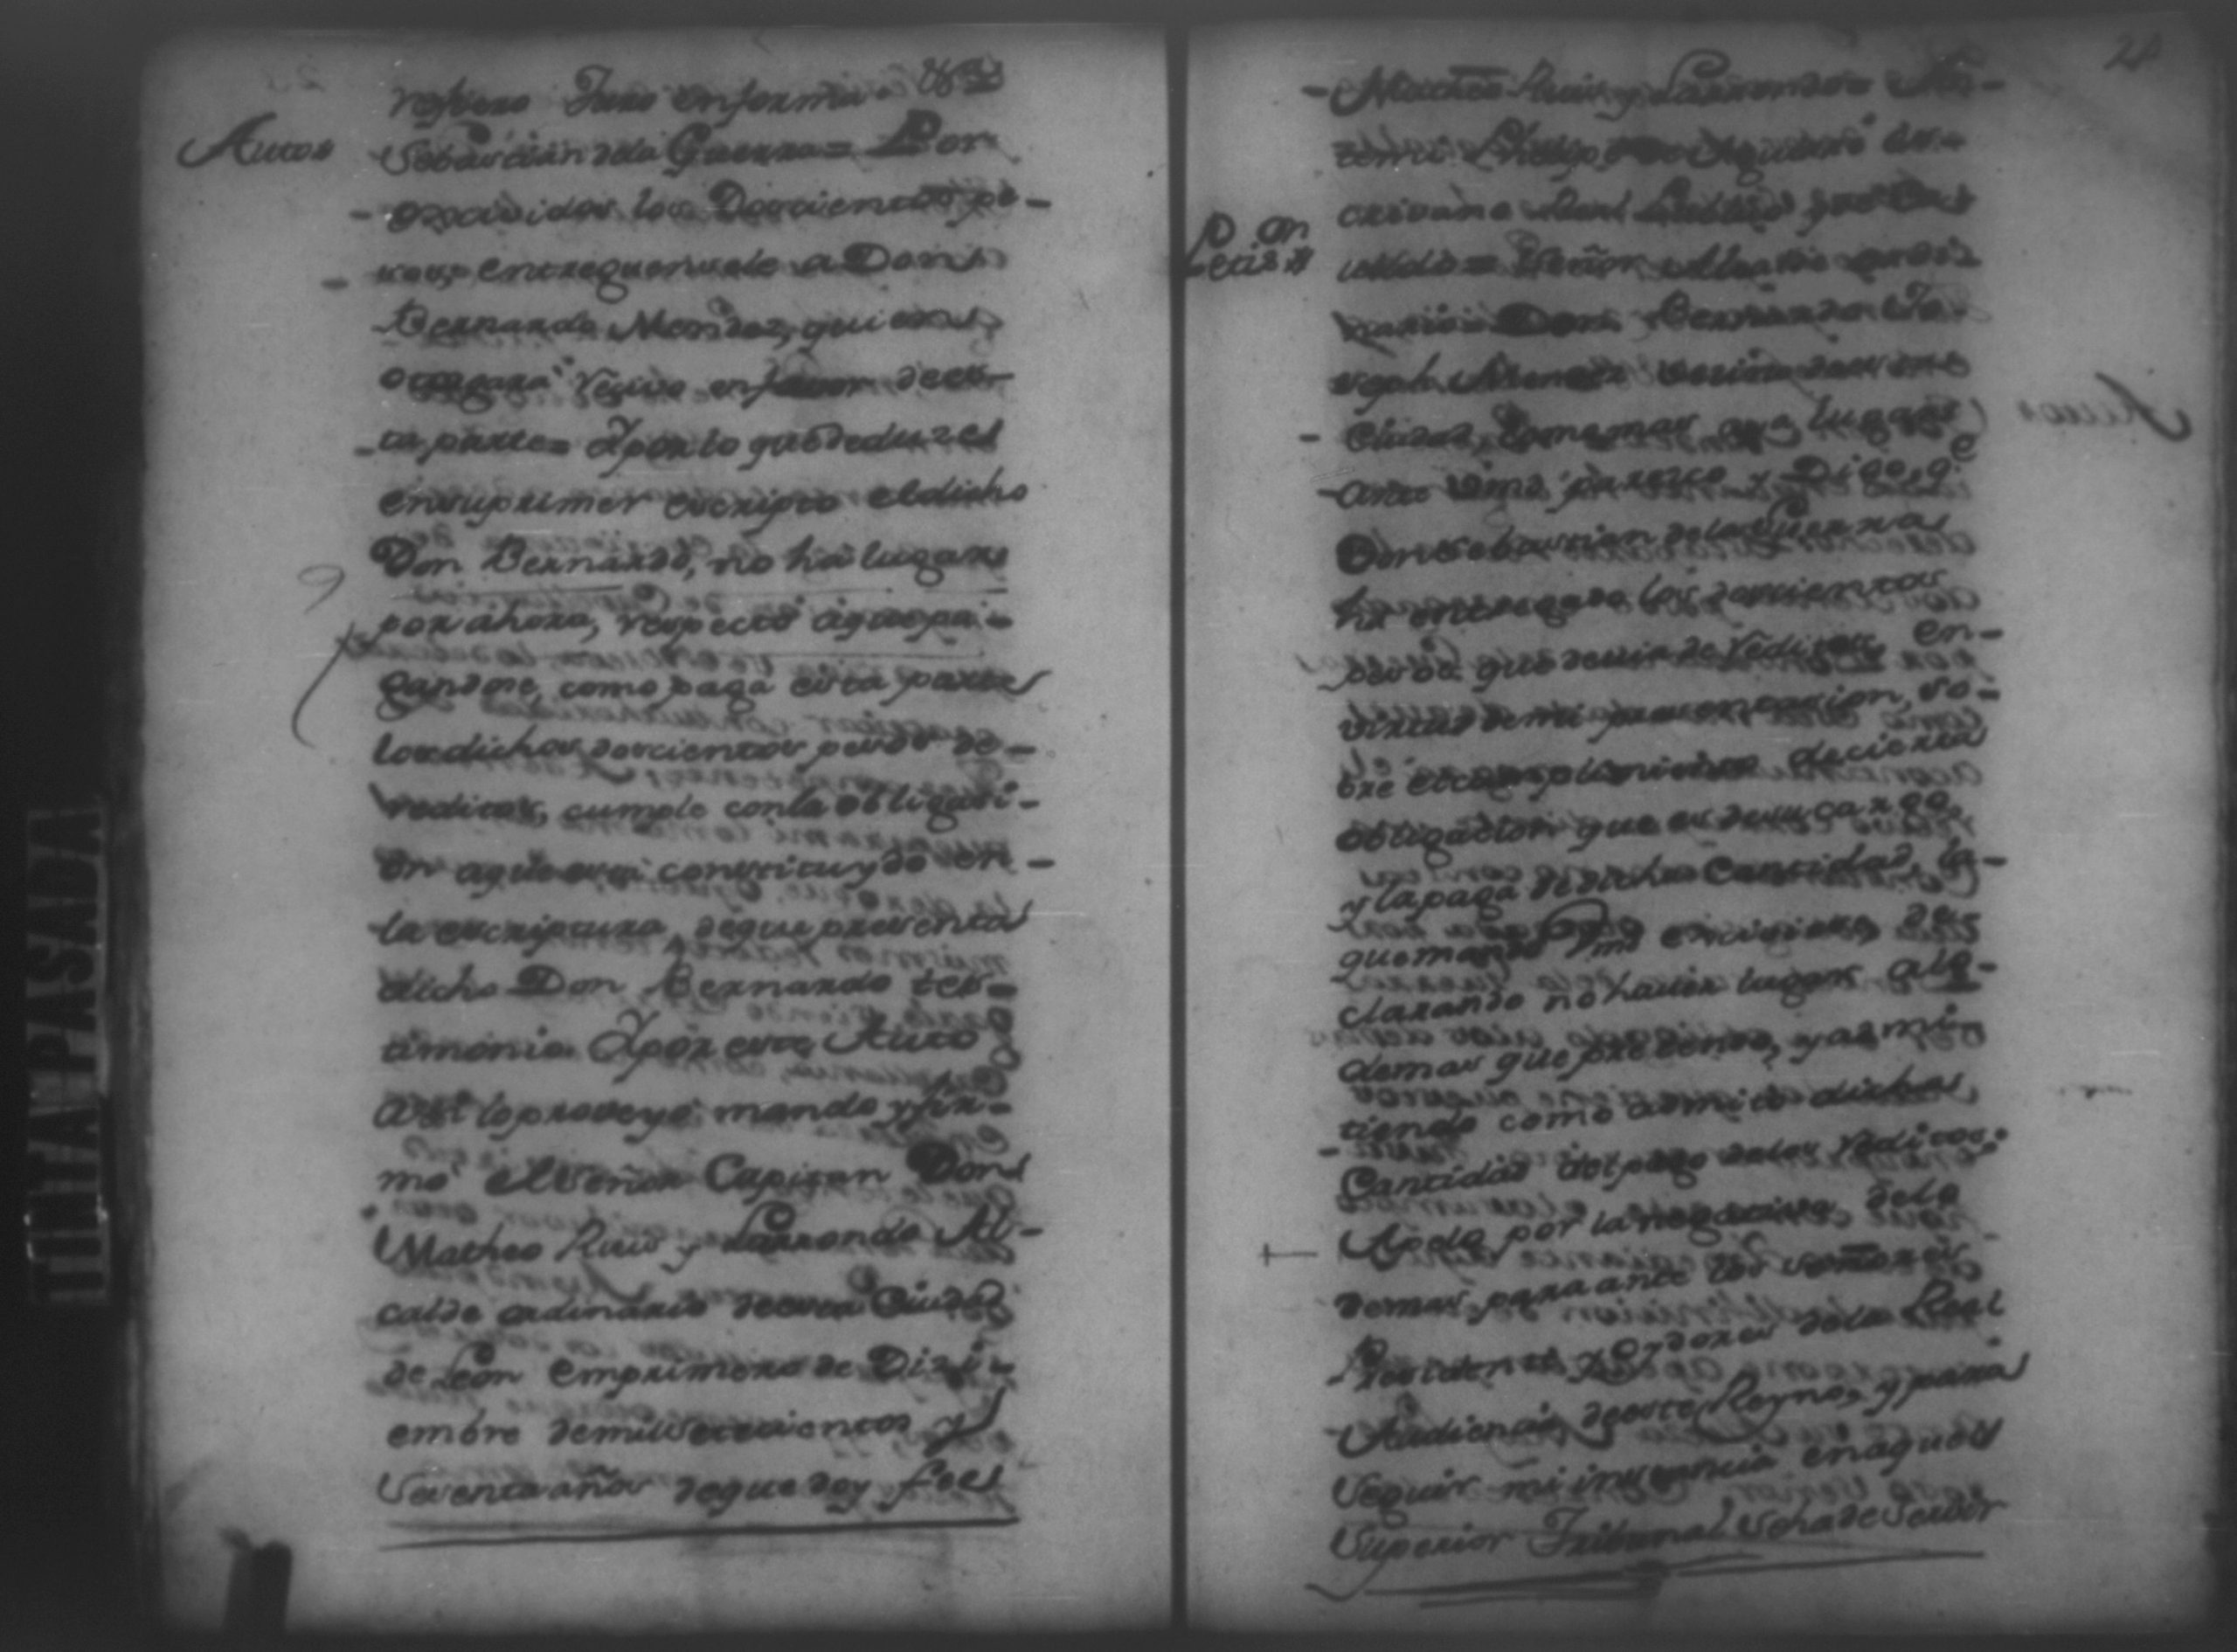 refiero Juro en forma &.ª
Autos
Sebastian de la Guerra = Por
- exsividos los Doscientos pe-
- sos, entreguensele a Don
Bernardo Mendez, quien
otorgará reсivo en favor de es-
- ta parte = Y por lo que deduze
en su primer escripto el dicho
Don Bernardo, no ha lugar
por ahora, respecto á que pa-
gandose, como paga esta parte
los dichos doscientos pesos de -
reditos, cumple con la obligasi-
on a que está constituydo en -
la escriptura, de que presenta
dicho Don Bernardo tes-
timonio. Y por este Auto
asi lo proveyó, mando y fir-
mó el Señor Capitan Don
Matheo Ruis y Larrondo Al-
calde ordinario de esta Ciudad
de Leon em primero de Dizi-
embre de mil setecientos y
setenta años de que doy fee
24
- Matheo Ruis y Larrondo = An-
temi Phelipe de Aguirre es-
crivano Real Publico y de Ca-
vildo = Señor Alcalde ordi-
P on
etiz n
nario = Don Bernardo Jo-
seph Mendez vesino de esta
- Ciudad, como mas aya lugar
- ante Vmd paresco, y Digo, q.e
Don Sebastian de la Guerra
ha entregado los doscientos
pesos que devia de reditos, en-
virtud de mi presentacion, so-
bre el cumplimiento de cierta
obligacion que es de su cargo,
y la paga de dicha Cantidad, la -
que mandó Vmd enсisiera, de-
clarando no haver lugar a lo -
demas que pretendo, y admi-
tiendo como admito dicha
- Cantidad del pago de los reditos.
Apelo por la negativa de lo
demas, para ante los señores
Presidente y Oydores de la Real
- Audiencia de este Reyno, y para
seguir mi instancia en aquel
Superior Tribunal se ha de servir